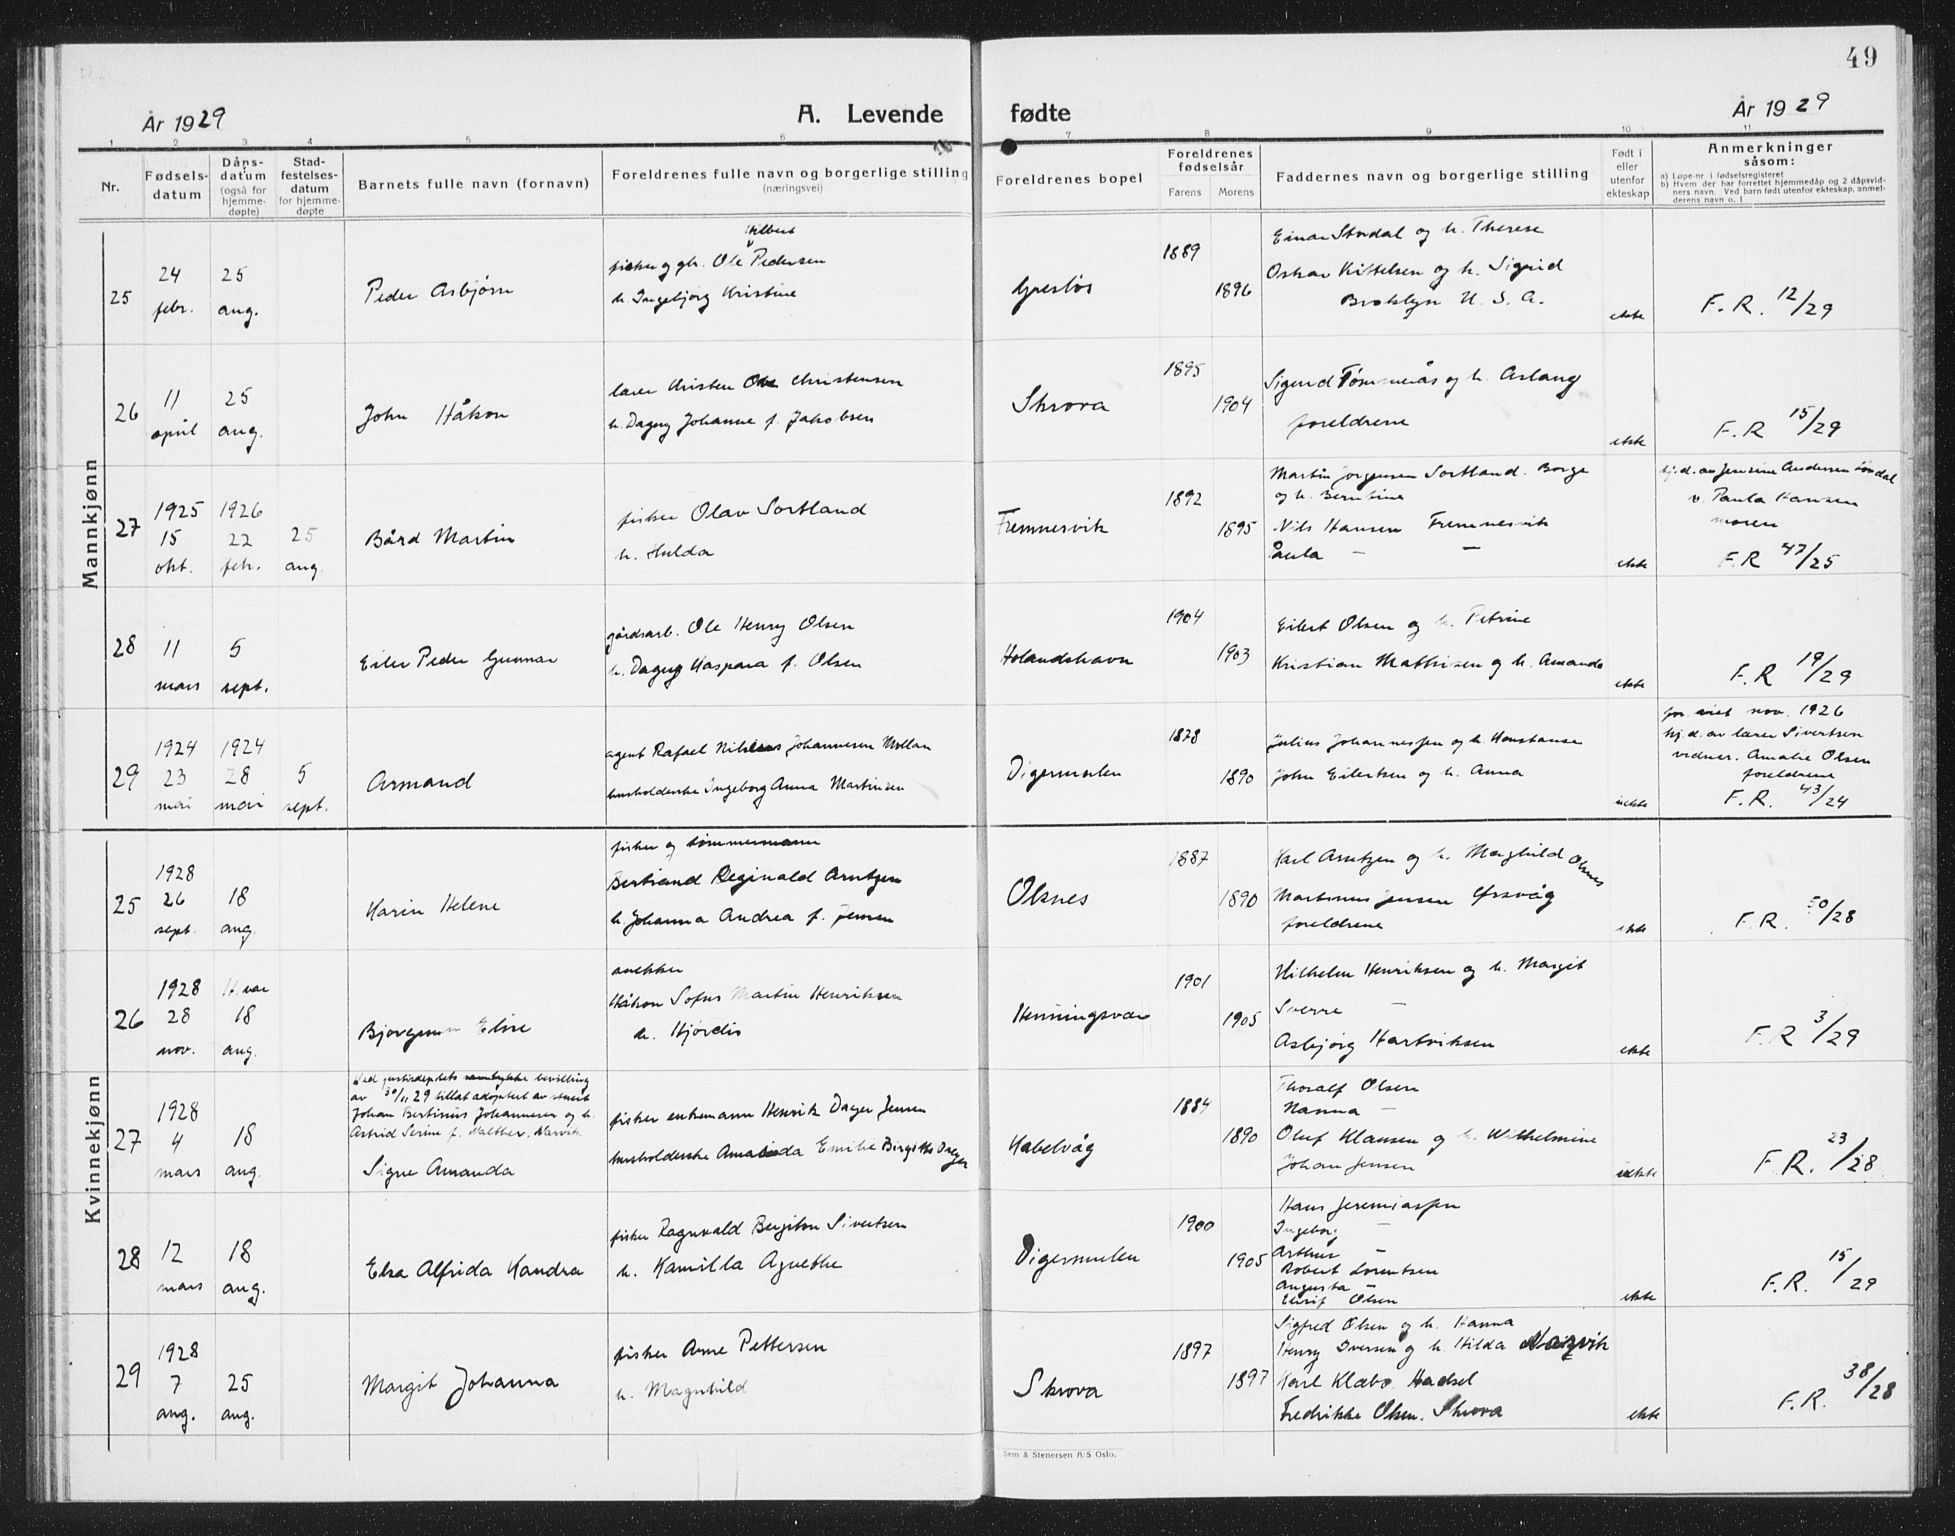 49
År 1929
A. Levende fødte
År 1929
1 2 3 4 5 6 7 8 9 10 11
Nr.
Fødselsdatum
Dåpsdatum (også for hjemmedøpte)
Stadfestelsesdatum for hjemmedøpte
Barnets fulle navn (fornavn)
Foreldrenes fulle navn og borgerlige stilling (næringsvei)
Foreldrenes bopel
Foreldrenes fødselsår
Farens Morens
Faddernes navn og borgerlige stilling
Født i eller utenfor ekteskap
Anmerkninger såsom:
a) Løpe-nr i fødselsregisteret
b) Hvem der har forrettet hjemmedåp og 2 dåpsvidners navn. Ved barn født utenfor ekteskap, anmelderens navn o. l
Mannkjønn
25
24 febr.
25 aug.
Peder Asbjørn
fisker og gb. Ole Albert Pedersen
h. Ingebjørg Kristine
1889
1896
Einar Stordal og h. Therese
Oskar Kittelsen og h. Sigrid
Brooklyn U. S. A.
ekte
F. R. 12/29
26
11 april
25 aug.
John Håkon
lærer Kristen Christensen
h. Dagny Johanne f. Jakobsen
Skrova
1895
1904
Sigurd Tømmerås og h. Aslaug
foreldrene
ekte
F. R 15/29
27
1925 15 okt.
1926 22 febr.
25 aug.
Bård Martin
fisker Olav Sortland
h. Hulda
Fremnesvik
1892
1895
Martin Jørgensen Sortland. Borge
og h. Berntine
Nils Hansen Fremnesvik
Paula — —
ekte
hj.d. av Jensine Andersen
v. Paula Hansen
moren
F. R 47/25
28
11 mars
5 sept.
Eiler Peder Gunnar
gårdsarb. Ole Henry Olsen
h. Dagny Kaspara f. Olsen
Holandshavn
1904
1903
Eilert Olsen og h. Petrine
Kristian Mathisen og h. Amanda
ekte
F. R 19/29
29
1924 23 mai
1924 28 mai
5 sept.
Armand
agent Rafael Johannesen Mollan
husholderske Ingeborg Anna Martinsen
Digermulen
1878
1890
Julius Johannessen og h. Konstanse
John Eilertsen og h. Anna
uekte
for. viet nov. 1926
hj.d. av lærer Sivertsen
vidner. Amalie Olsen
foreldrene
F. R. 43/24
Kvinnekjønn
25
1928 26 sept.
18 aug.
Karin Helene
fisker og tømmermann
Bertrand Reginald Arntzen
h. Johanna Andrea f. Jensen
Olsnes
1887
1890
Karl Arntzen og h. Maghild Olsnes
Martinus Jensen Ørsvåg
foreldrene
ekte
F. R. 50/28
26
1928 28 nov.
18 aug.
Elise
Håkon Sofus Martin Henriksen
h. Hjørdis
Henningsvær
1901
1905
Vilhelm Henriksen og h. Margit
Sverre —
Asbjørg Hartviksen
ekte
F. R 3/29
27
1928 4 mars
18 aug.
bevilling
av 30/11 29 tillat adoptert av
Johan Bertinus Johannesen og h.
Astrid Serine f. Walther. Narvik.
Signe Amanda
fisker enkemann Henrik Dager Jensen
husholderske Amanda Emilie Birgitte
Kabelvåg
1884
1890
Thoralf Olsen
Nanna —
Oluf Klausen og h. Wilhelmine
Johan Jensen
uekte
F. R. 23/28
28
12 mars
18 aug.
Elsa Alfrida Kandra
fisker Ragnvald Bergiton Sivertsen
h. Kamilla Agnethe
Digermulen
1900
1905
Hans Jeremiassen
Ingeborg —
Arthur —
Robert Lorentsen
Augusta —
Olsen
ekte
F. R. 15/29
29
1928 7 aug.
25 aug.
Margit Johanna
fisker Arne Pettersen
h. Magnhild
Skrova
1897
1897
Sigfred Olsen og h. Hanna
Henry Iversen og h. Hilda Narvik
Karl Klæbo. Hadsel
Fredrikke Olsen. Skrova
ekte
F. R. 38/28
Sem & Stenersen A/S Oslo.